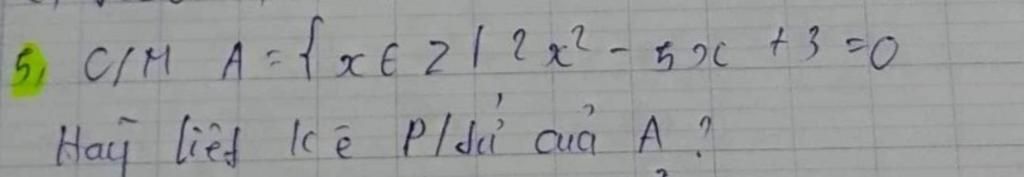 5, C/M A = { x ∈ Z | 2x² - 5x + 3 = 0
Haỹ liệt kê P/tử cuả A ?